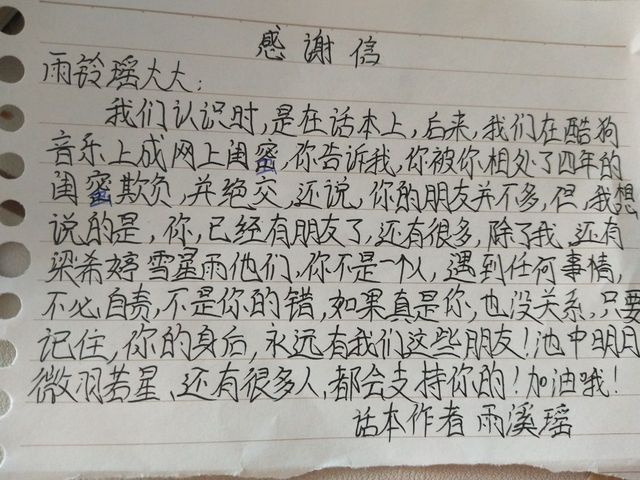 感谢信
雨铃瑶大大：
我们认识时，是在话本上，后来，我们在酷狗
音乐上成网上闺蜜，你告诉我，你被你相处了四年的
闺蜜欺负，并绝交，还说，你的朋友并不多，但，我想
说的是，你，已经有朋友了，还有很多，除了我，还有
梁希婷雪星雨他们，你不是一个人，遇到任何事情，
不必自责，不是你的错，如果真是你，也没关系，只要
记住，你的身后，永远有我们这些朋友！池中明日
微羽若星，还有很多人，都会支持你的！加油哦！
话本作者 雨溪瑶